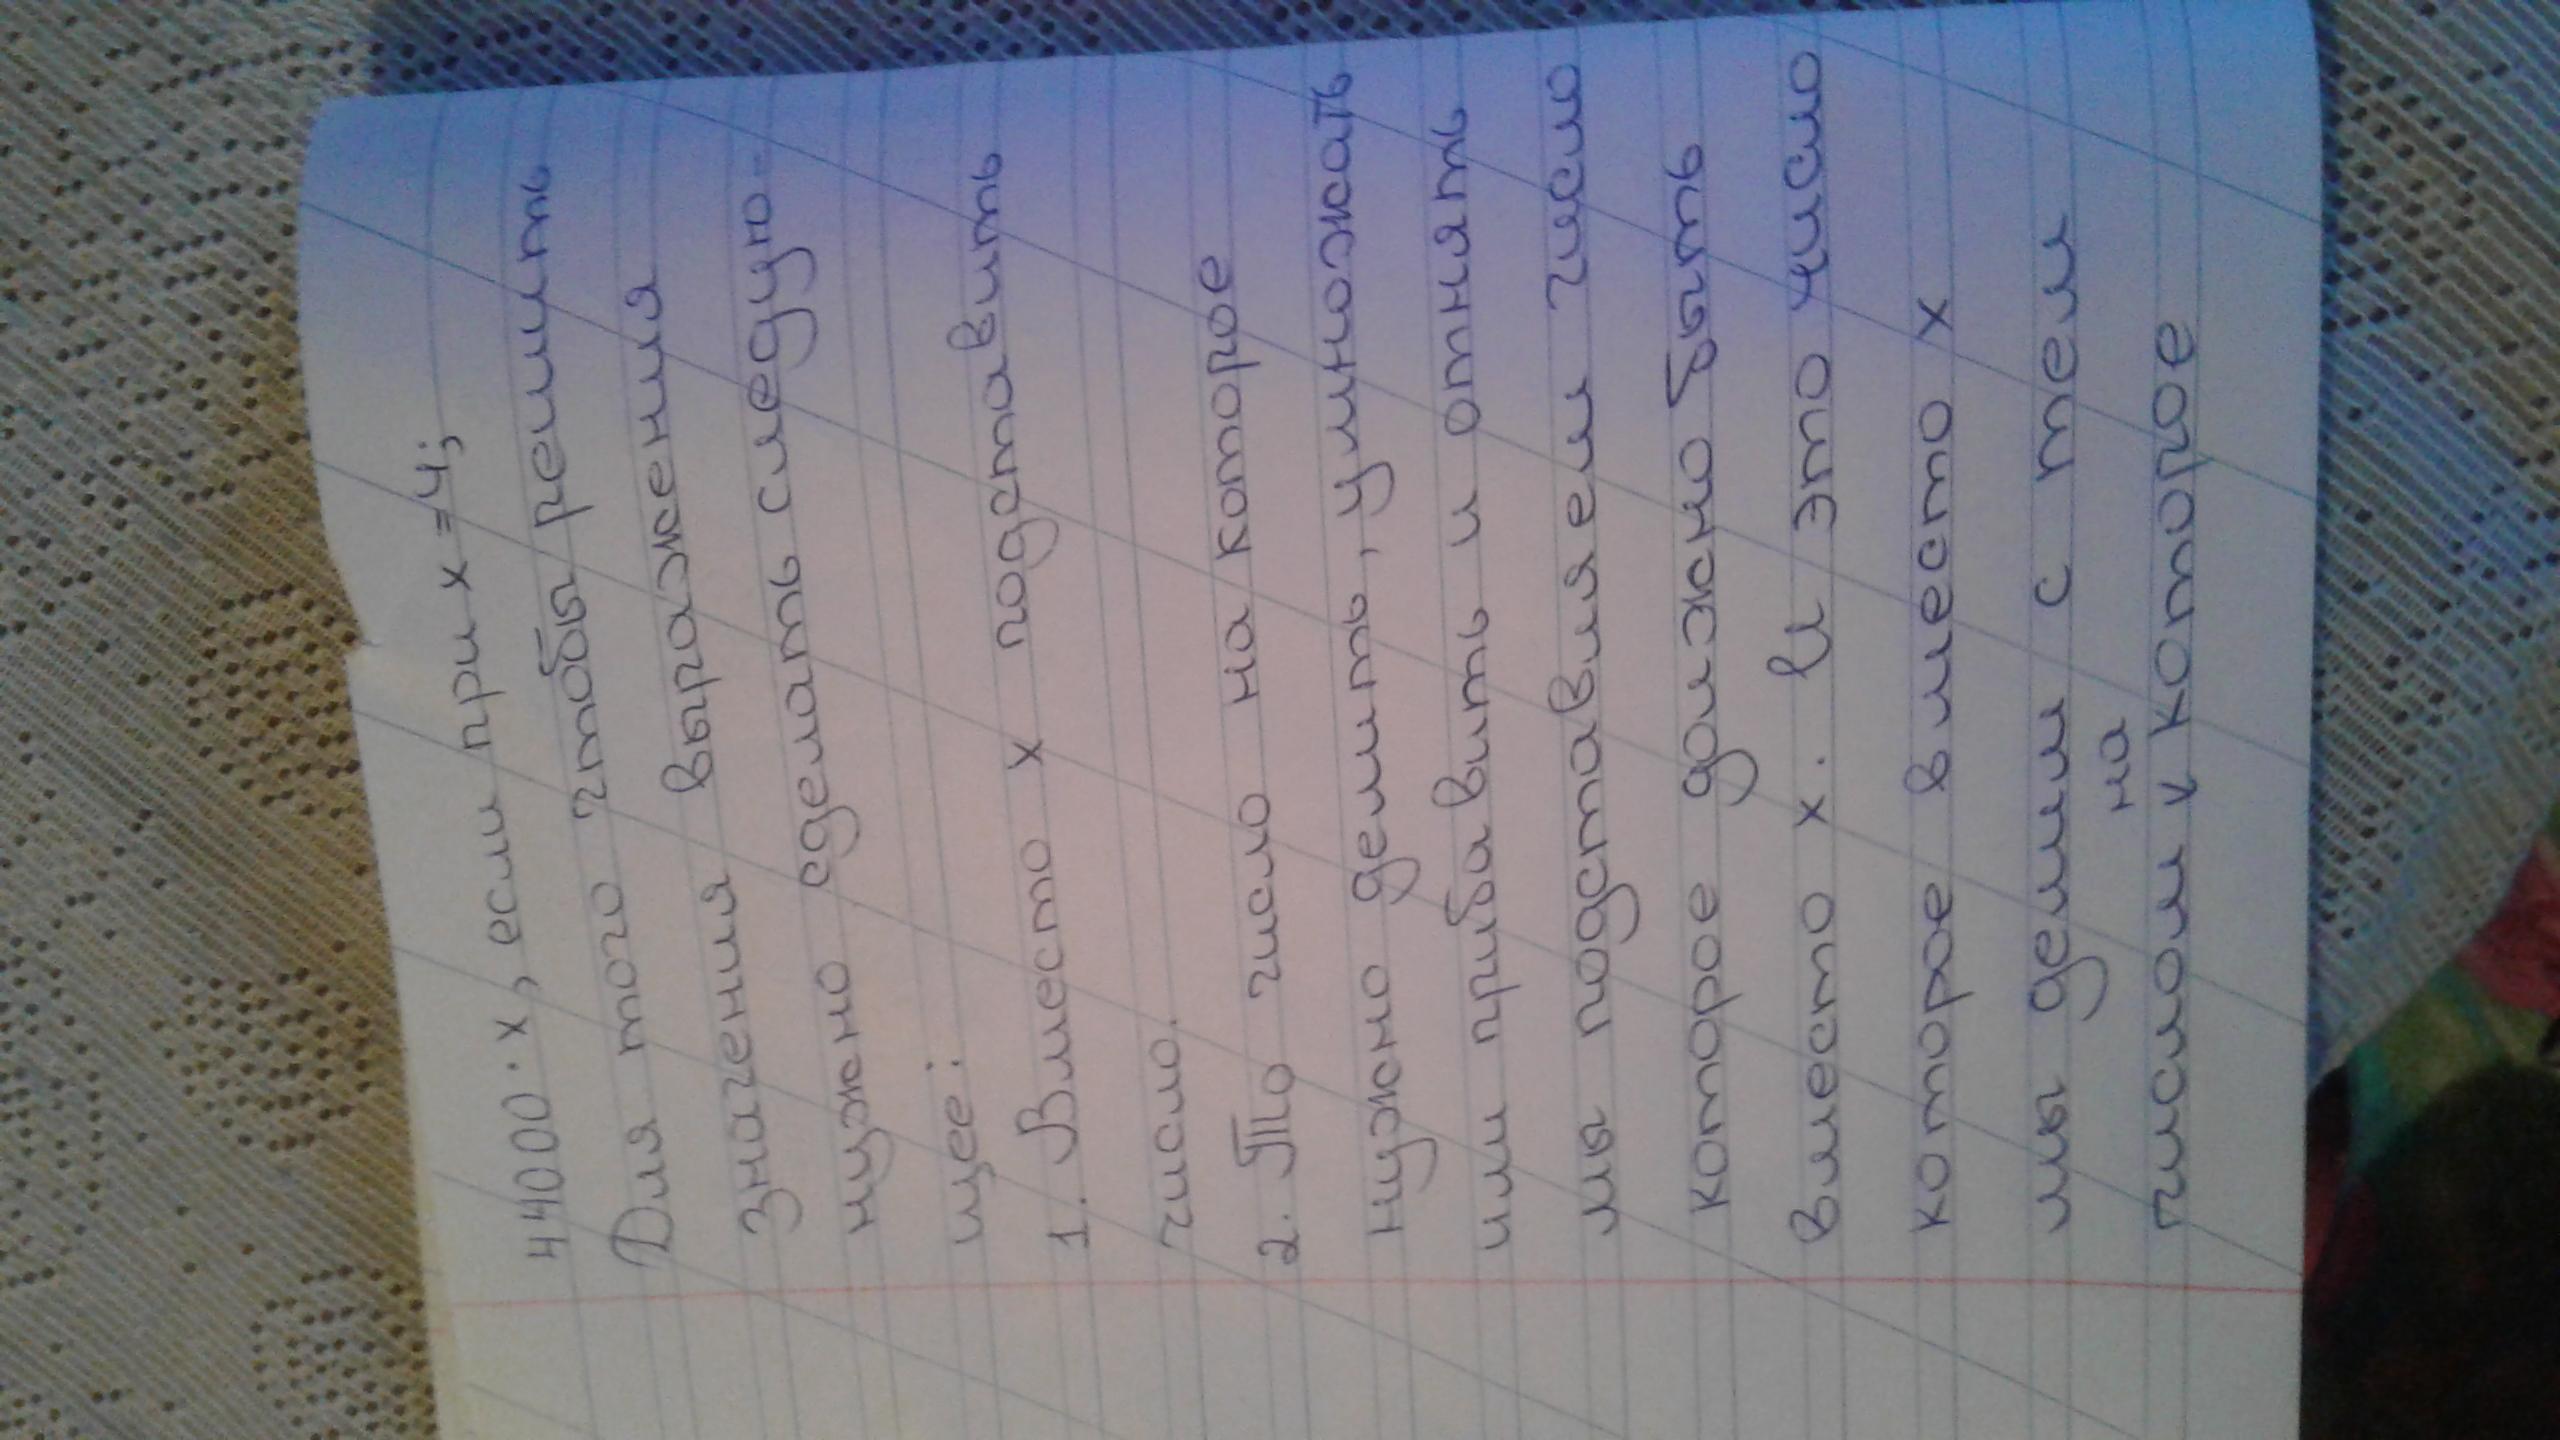 44000 · x, если при x = 4;
Для того чтобы решить
значения выражения
нужно сделать следую-
щее:
1. Вместо x подставить
число.
2. То число на которое
нужно делить, умножать
или прибавить и отнять
мы подставляем число
которое должно быть
вместо x. И это число
которое вместо x
мы делим с тем
на
числом v которое